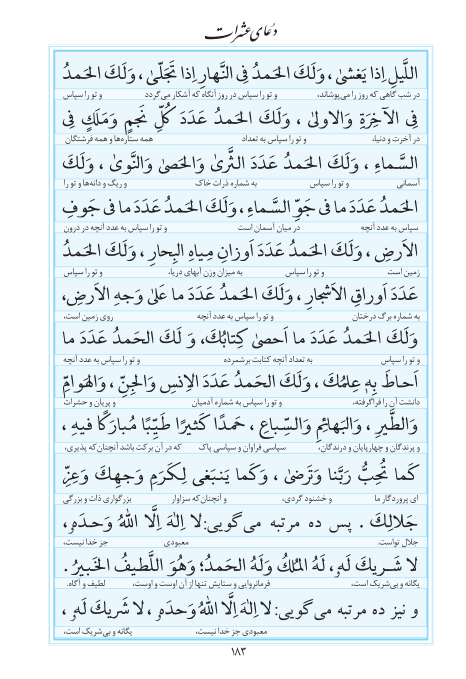 دعای عشرات
اللَّيلِ اِذا يَغشىٰ ، وَلَكَ الحَمدُ فِى النَّهارِ اِذا تَجَلّىٰ ، وَلَكَ الحَمدُ
در شب گاهی که روز را می‌پوشاند، و تو را سپاس در روز آنگاه که آشکار می‌گردد و تو را سپاس
فِى الآخِرَةِ وَالاولىٰ ، وَلَكَ الحَمدُ عَدَدَ كُلِّ نَجمٍ وَمَلَكٍ فِى
در آخرت و دنیا، و تو را سپاس به تعداد همه ستاره‌ها و همه فرشتگان
السَّماءِ ، وَلَكَ الحَمدُ عَدَدَ الثَّرىٰ وَالحَصىٰ وَالنَّوىٰ ، وَلَكَ
آسمانی و تو را سپاس به شماره ذرات خاک و ریگ و دانه‌ها و تو را
الحَمدُ عَدَدَ ما فى جَوِّ السَّماءِ ، وَلَكَ الحَمدُ عَدَدَ ما فى جَوفِ
سپاس به عدد آنچه در میان آسمان است و تو را سپاس به عدد آنچه در درون
الاَرضِ ، وَلَكَ الحَمدُ عَدَدَ اَوزانِ مِياهِ البِحارِ ، وَلَكَ الحَمدُ
زمین است و تو را سپاس به میزان وزن آبهای دریا، و تو را سپاس
عَدَدَ اَوراقِ الاَشجارِ ، وَلَكَ الحَمدُ عَدَدَ ما عَلىٰ وَجهِ الاَرضِ،
به شماره برگ درختان و تو را سپاس به عدد آنچه روی زمین است،
وَلَكَ الحَمدُ عَدَدَ ما اَحصىٰ كِتابُكَ، وَ لَكَ الحَمدُ عَدَدَ ما
و تو را سپاس به تعداد آنچه کتابت برشمرده و تو را سپاس به عدد آنچه
اَحاطَ بِهِ عِلمُكَ ، وَلَكَ الحَمدُ عَدَدَ الاِنسِ وَالجِنِّ ، وَالهَوامِّ
دانشت آن را فراگرفته، و تو را سپاس به شماره آدمیان و پریان و حشرات
وَالطَّيرِ ، وَالبَهائِمِ وَالسِّباعِ ، حَمدًا كَثيرًا طَيِّبًا مُبارَكًا فيهِ ،
و پرندگان و چهارپایان و درندگان، سپاسی فراوان و سپاسی پاک که در آن برکت باشد آنچنان‌که پذیری،
كَما تُحِبُّ رَبَّنا وَتَرضىٰ ، وَكَما يَنبَغى لِكَرَمِ وَجهِكَ وَعِزِّ
ای پروردگار ما و خشنود گردی، و آنچنان‌که سزاوار بزرگواری ذات و بزرگی
جَلالِكَ . پس ده مرتبه می‌گویی:لا اِلٰهَ اِلَّا اللهُ وَحدَهُ،
جلال تواست. معبودی جز خدا نیست،
لا شَريكَ لَهُ، لَهُ المُلكُ وَلَهُ الحَمدُ؛ وَهُوَ اللَّطيفُ الخَبيرُ .
یگانه و بی‌شریک است، فرمانروایی و ستایش تنها از آن اوست و اوست، لطیف و آگاه.
و نیز ده مرتبه می‌گویی:لا اِلٰهَ اِلَّا اللهُ وَحدَهُ ، لا شَريكَ لَهُ ،
معبودی جز خدا نیست، یگانه و بی‌شریک است،
۱۸۳